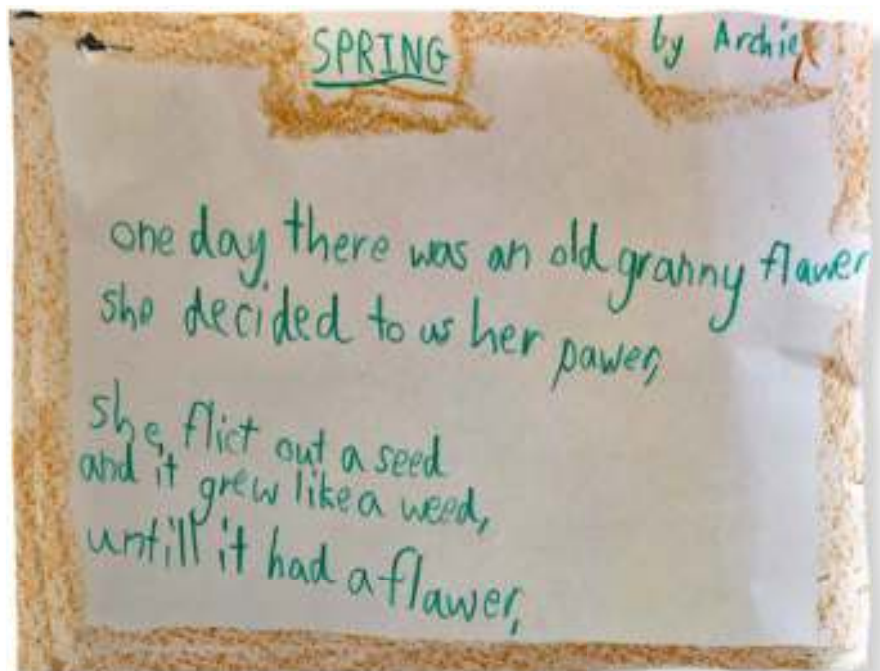 SPRING
by Archie
one day there was an old granny flawer
she decided to us her pawer,
she flict out a seed
and it grew like a weed,
untill it had a flawer,